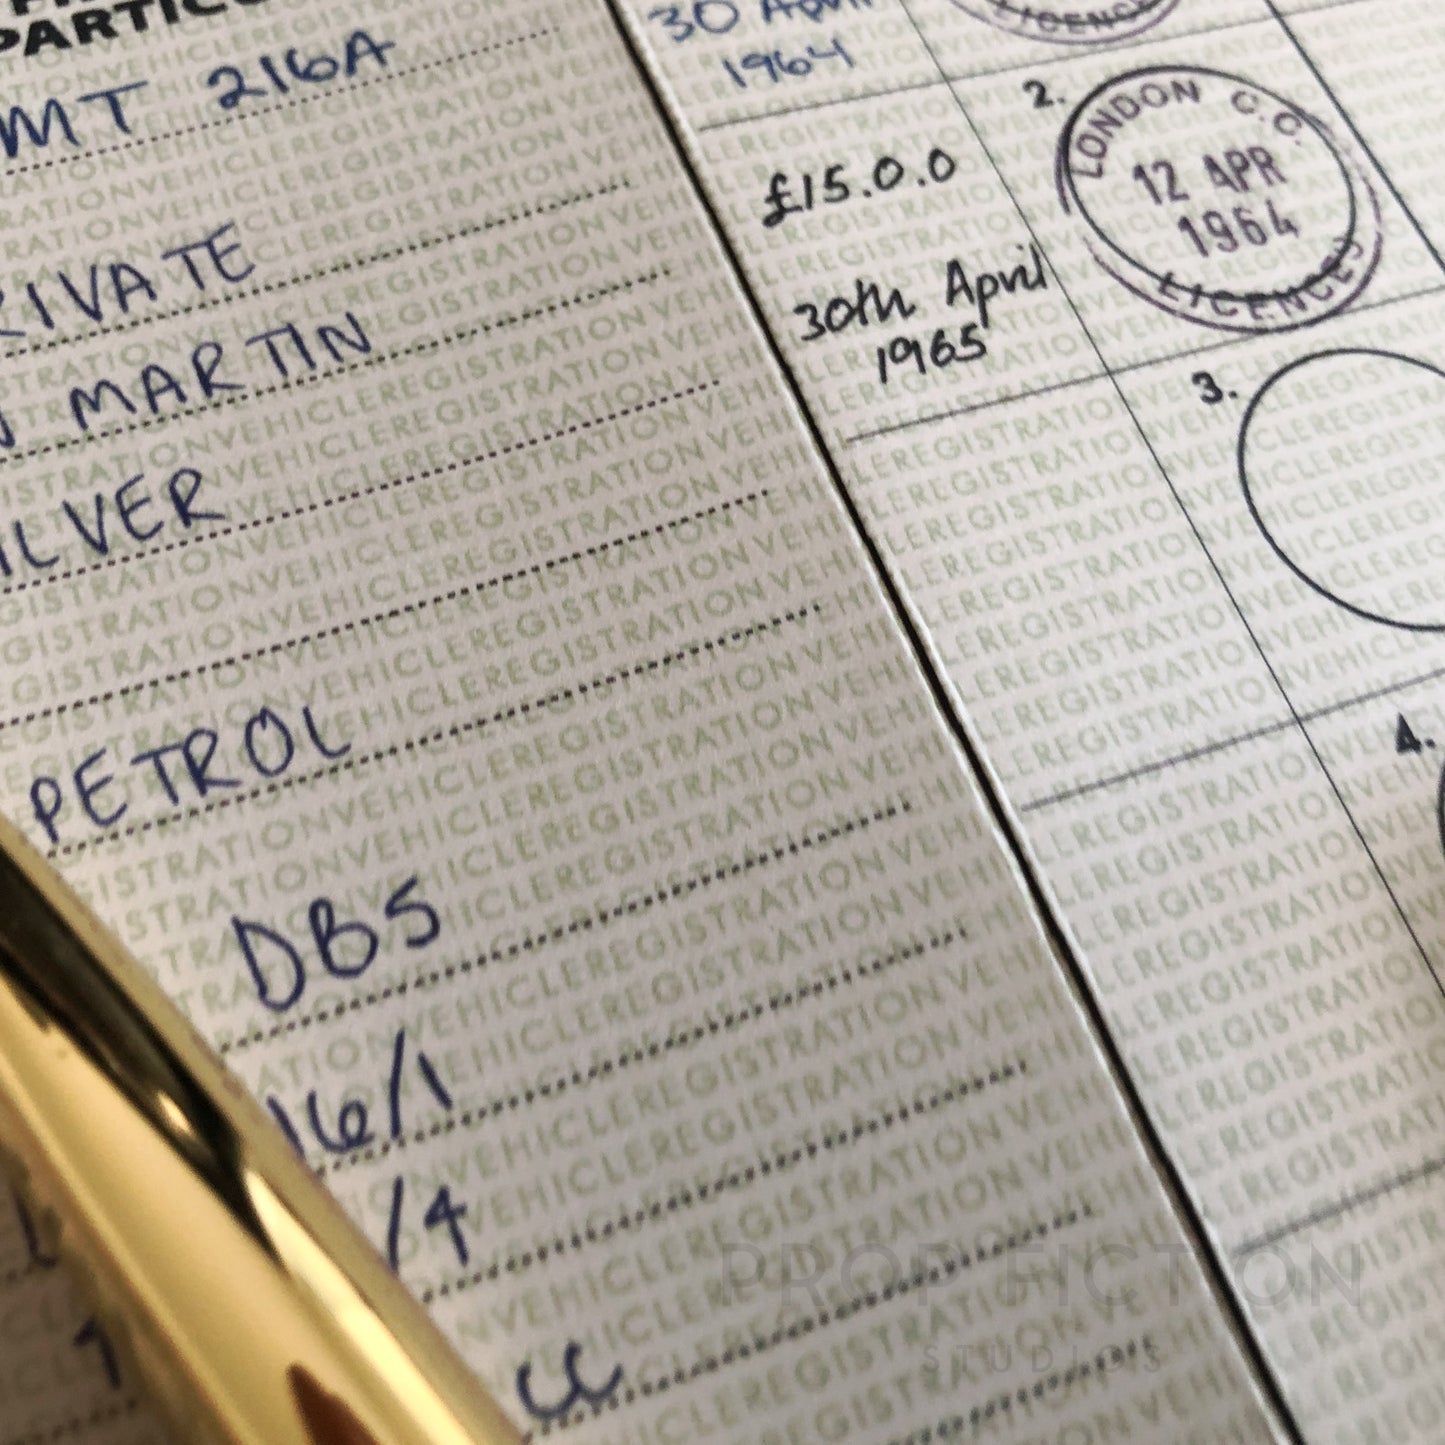 PARTIC
MT 216A
RIVATE
MARTIN
ILVER
PETROL
DB5
16/1
/4
CC
30 April
1964
LICENCES
£15.0.0
30th April
1965
2.
LONDON C.C.
12 APR
1964
LICENCES
3.
4.
VEHICLEREGISTRATIONVEHICLEREGISTRATION
PROP FICTION
STUDIOS